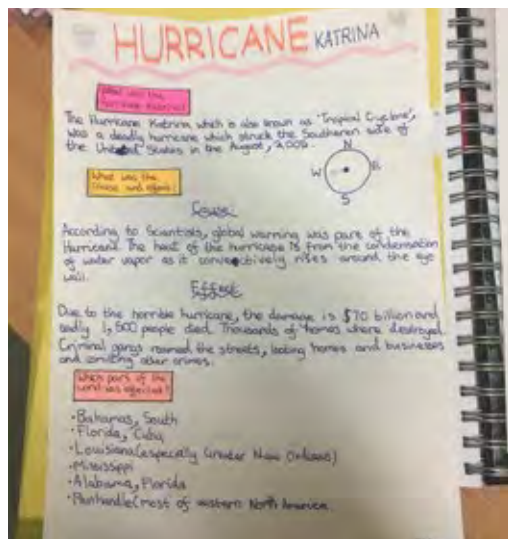 HURRICANE KATRINA
What was the
hurricane Katrina?
The Hurricane Katrina which is also known as 'Tropical Cyclone',
was a deadly hurricane which struck the Southeren side of
the United States in the August, 2005.
N
W
S
What was the
cause and effect?
Cause:
According to Scientists, global warning was part of the
Hurricane. The heat of the hurricane is from the condensation
of water vapor as it convectively rises around the eye
wall.
Effect
Due to the horrible hurricane, the damage is $70 billion and
sadly 1,500 people died. Thousands of homes where destroyed.
Criminal gangs roamed the streets, looting homes and businesses
and commiting other crimes.
Which parts of the
world was effected?
•Bahamas, South
•Florida, Cuba
•Louisiana(especially Greater New Orleans)
•Mississippi
•Alabama, Florida
•Panhandle(most of eastern North America.